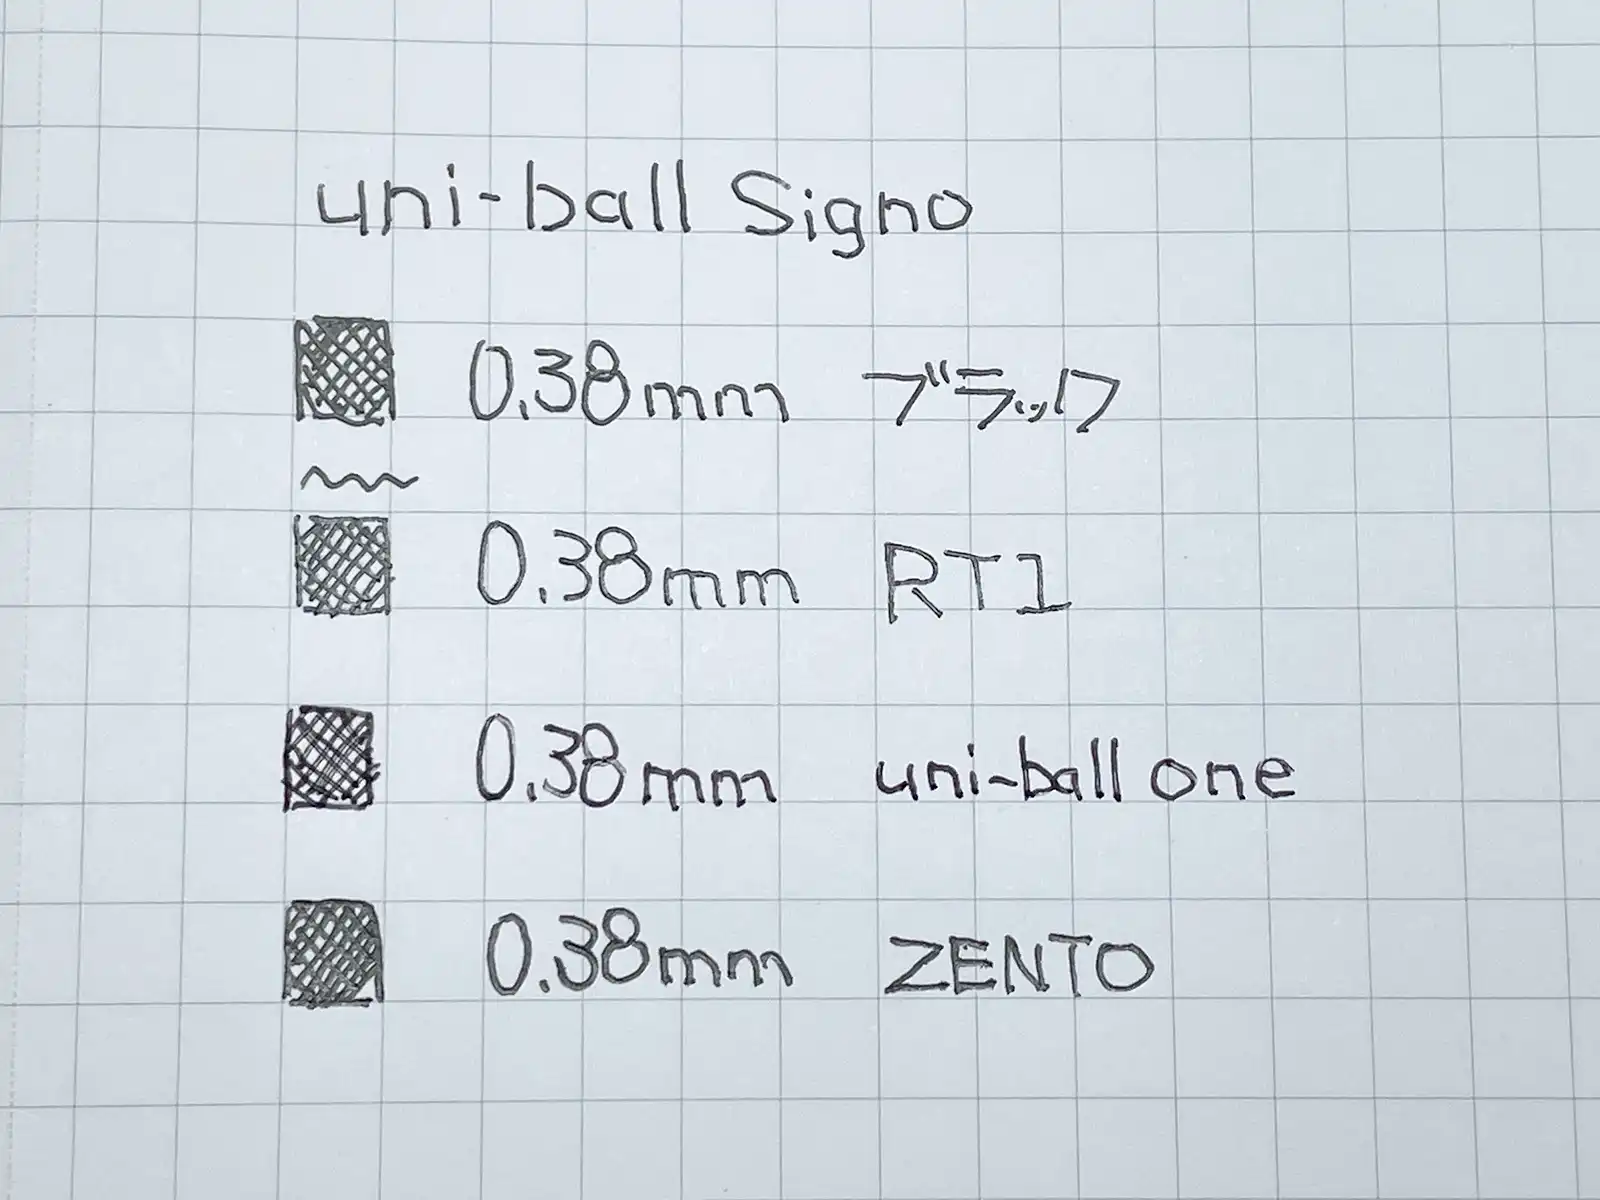 uni-ball Signo
0.38mm ブラック
0.38mm RT1
0.38mm uni-ball one
0.38mm ZENTO